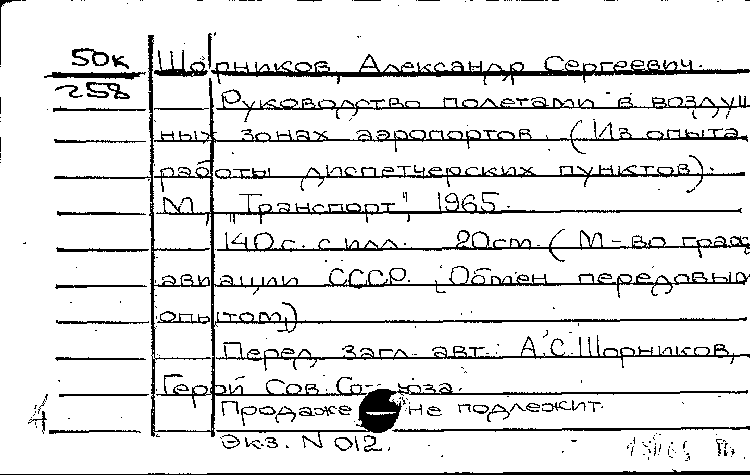 50к
258
Шорников, Александр Сергеевич.
Руководство полетами в воздуш
ных зонах аэропортов. (Из опыта
работы диспетчерских пунктов).
М., "Транспорт", 1965.
140 с. с илл. 20 см. (М-во граж
авиации СССР. Обмен передовым
опытом)
Перед загл. авт.: А.С. Шорников,
Герой Сов. Союза.
Продаже не подлежит.
Экз. N 012.
4